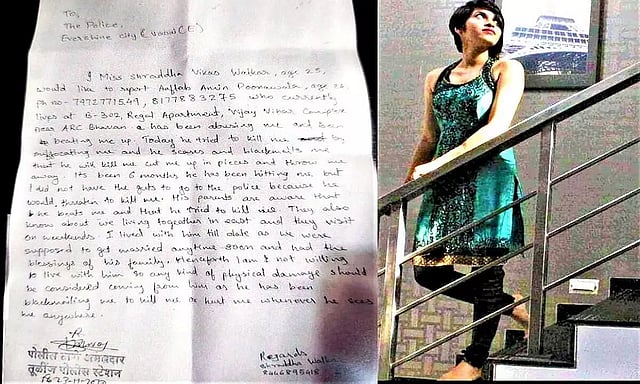 To,
The Police,
Evershine city (Vasai (E)
I Miss Shraddha Vikas Walkar, age 25,
would like to report Aaftab Amin Poonawala, age 26,
ph no - 7972771549, 8177883275 who currently
lives at B-302, Regal Apartment, Vijay Vihar Complex
near ARC Bhavan a has been abusing me and been
beating me up. Today he tried to kill me by
suffocating me and he scares and blackmails me
that he will kill me cut me up in pieces and throw me
away. Its been 6 months he has been hitting me but
I did not have the guts to go to the police because he
would threaten to kill me. His parents are aware that
he beats me and that he tried to kill me. They also
know about we living together in east and they visit
on weekends. I lived with him till date as we were
supposed to get married anytime soon and had the
blessings of his family. Henceforth I am not willing
to live with him so any kind of physical damage should
be considered coming from him as he has been
blackmailing me to kill me or hurt me whenever he sees
me anywhere.
पोलीस ठाणे अंमलदार
तुळींज पोलीस स्टेशन
23-11-2020
Regards
Shraddha Walkar